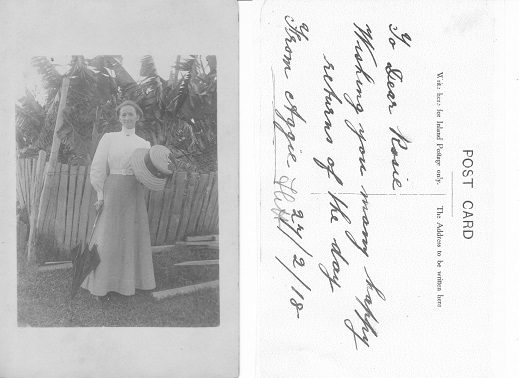 POST CARD
Write here for Inland Postage only.
The Address to be written here
To Dear Rosie
Wishing you many happy
returns of the day
From Aggie
/2/18